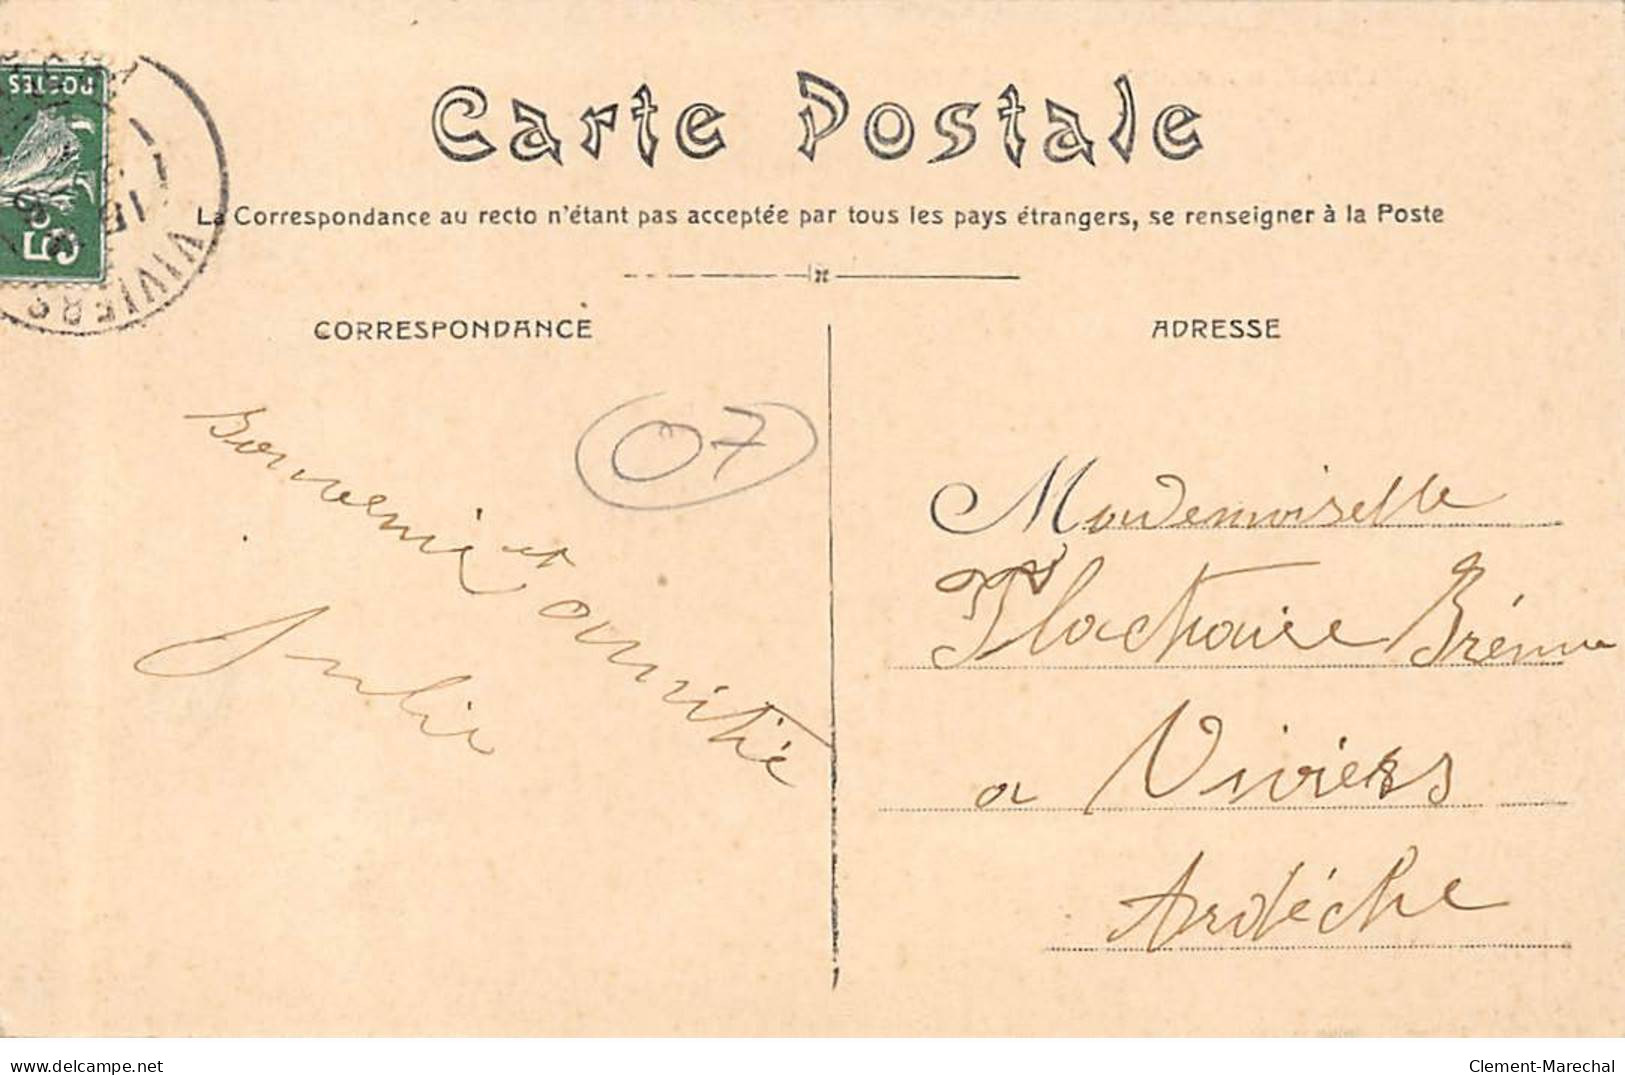 POSTES
5c
VIVIERS
Carte Postale
La Correspondance au recto n'étant pas acceptée par tous les pays étrangers, se renseigner à la Poste
CORRESPONDANCE
ADRESSE
07
Souvenir et amitié
Julie
Mademoiselle
Flachaire
a Viviers
Ardèche
delcampe.net
Clement-Marechal